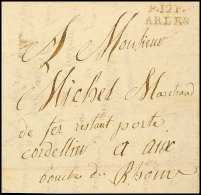 P.12.P.
ARLES
A Monsieur
Michel Marchand
de fer restant porte
cordellier a aix
bouche du Rhone